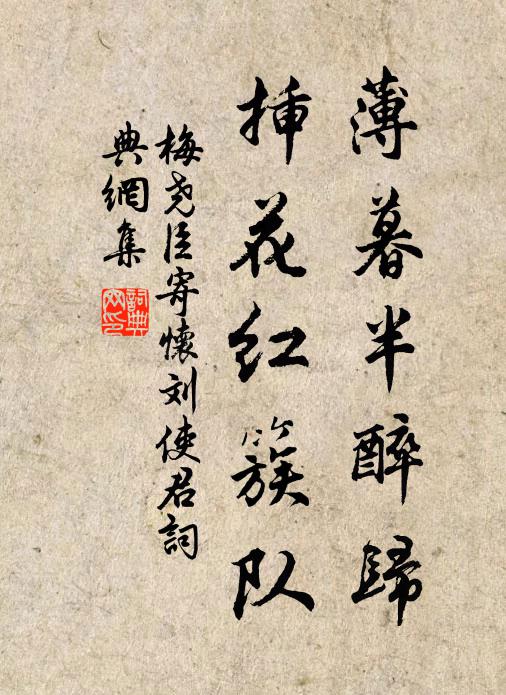 薄暮半醉歸
插花红簇队
梅尧臣寄懷刘使君詞
典網集
詞典
网印